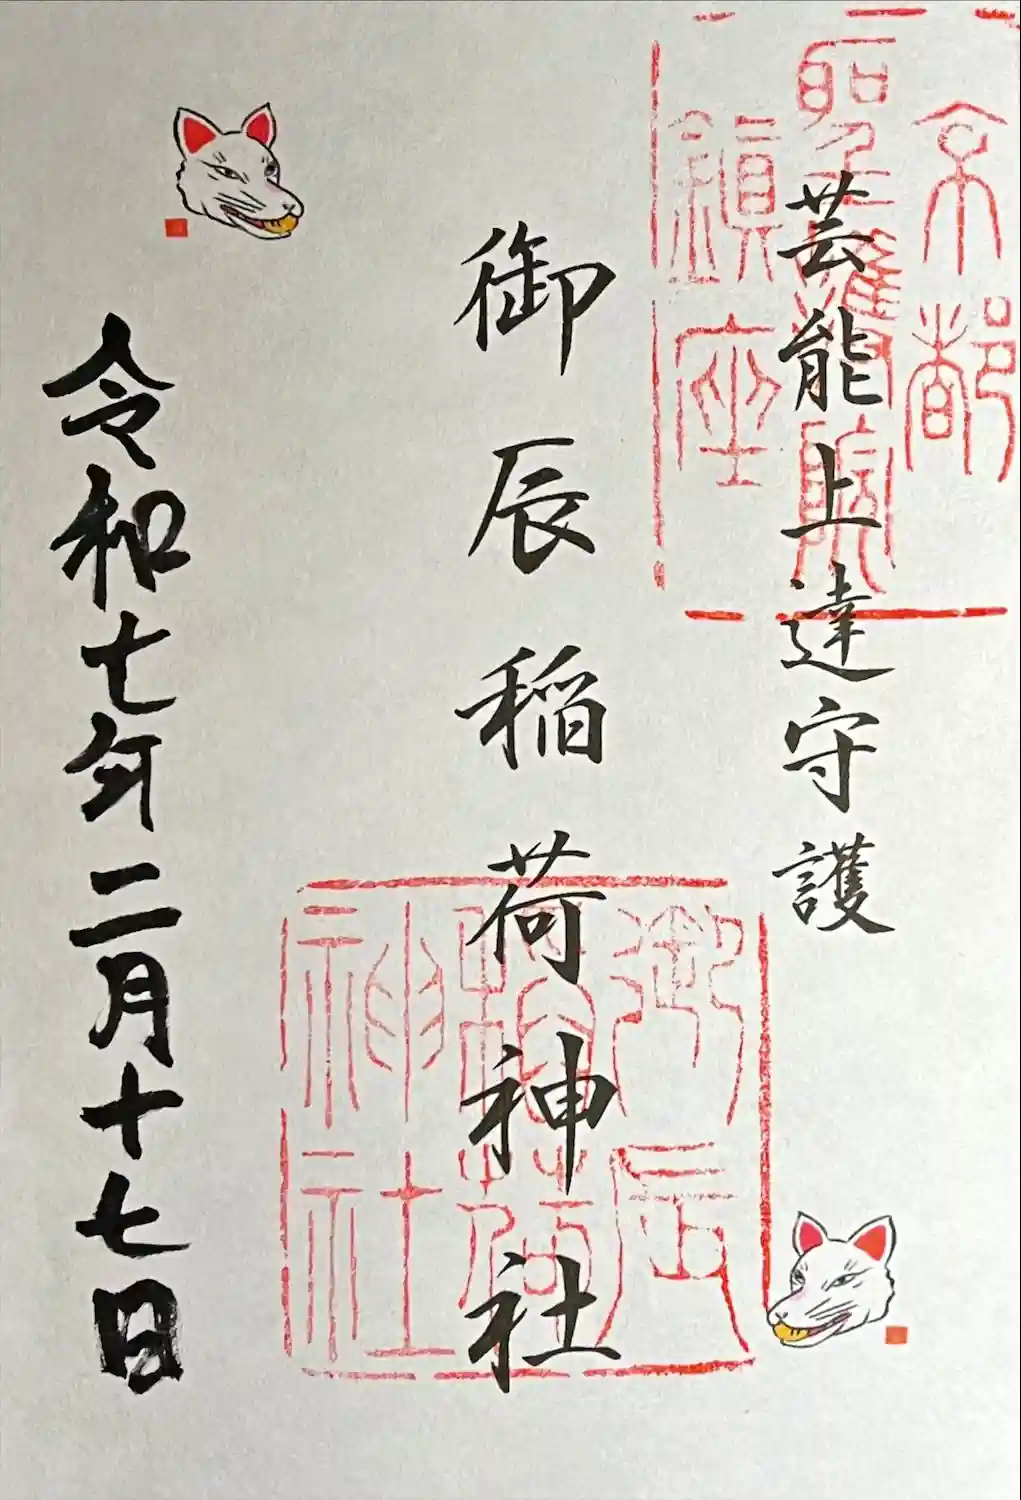 京都
聖護院
鎮座
芸能上達守護
御辰稲荷神社
御辰
稲荷
神社
令和七年二月十七日